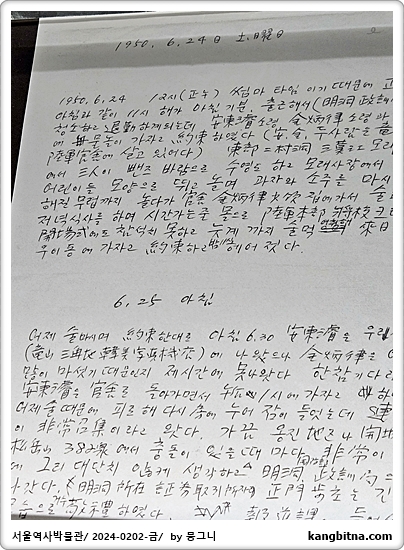 1950. 6. 24日 土.曜日
1950. 6. 24 12시(正午) 썸머 타임 이기 때문에 正
아침과 같이 11시 해가 아침 기분. 출근해서 (明洞 政訓
청소하고 退勤하게되는데 安東濬 소령 金炳律 소령 와
에 놀러 가자고 約束하였다 (安, 金, 두사람은 龍
陸軍官舍에 살고 있었다) 東部二村洞 三葉르 모래
에서 三人이 빤즈 바람으로 수영도 하고 모래사장에서
어린이들 모양으로 뛰고 놀며 과자와 소주를 마시
해질 무렵까지 놀다가 官舍 金炳律 집에서 술
저녁식사를 하며 시간가는줄 몰으로 陸軍本部 將校크
開場式에도 참석치 못하고 늦게 까지 술먹 來日
우이동에 가자고 約束하고 헤어졌다.
6. 25 아침
어제 술마시며 約束한대로 아침 6.30 安東濬을 우리
(龍山 三角地 ) 에 나왔으나 金炳律은
많이 마섯기 때문인지 제시간에 못나왔다 한참 기다
安東濬을 官舍로 돌아가면서 1시에 가자고 하
어제술 때문에 피로해 다시 누어 잠이 들었는데
이 非常召集이라고 왔다. 가끔 옹진 地区나 開
松岳山 38線에서 충돌이 있을 때 마다 非常이
에 그리 대단치 않게 생각하고 明洞 政訓局
나갔다. (明洞 所在 証券取引所 正門 步哨는 긴
습으로 敬禮하였다. 報道課
서울역사박물관/ 2024-0202-금/ by 뭉그니
kangbitna.com